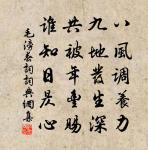 八風調養力
九地發生深
共被年豐賜
誰知日是心
毛滂春詞詞典網集